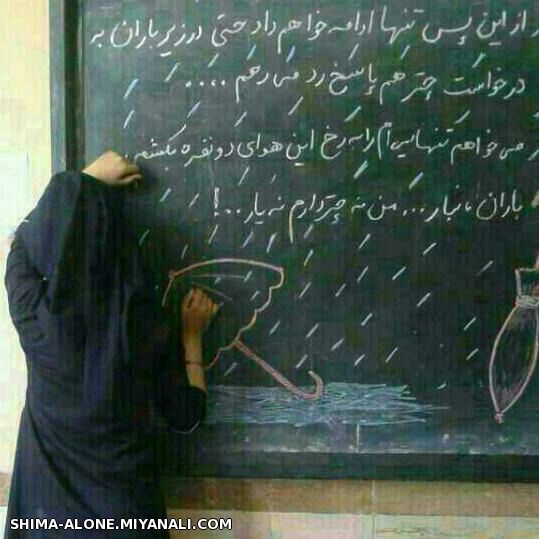 از این پس تنها ادامه خواهم داد حتی در زیر باران به
درخواست چتر هم پاسخ رد می دهم ....
می خواهم تنهایی ام را به رخ این هوای دونفره بکشم
باران، نبار... من نه چتر دارم نه یار..!
SHIMA-ALONE.MIYANALI.COM